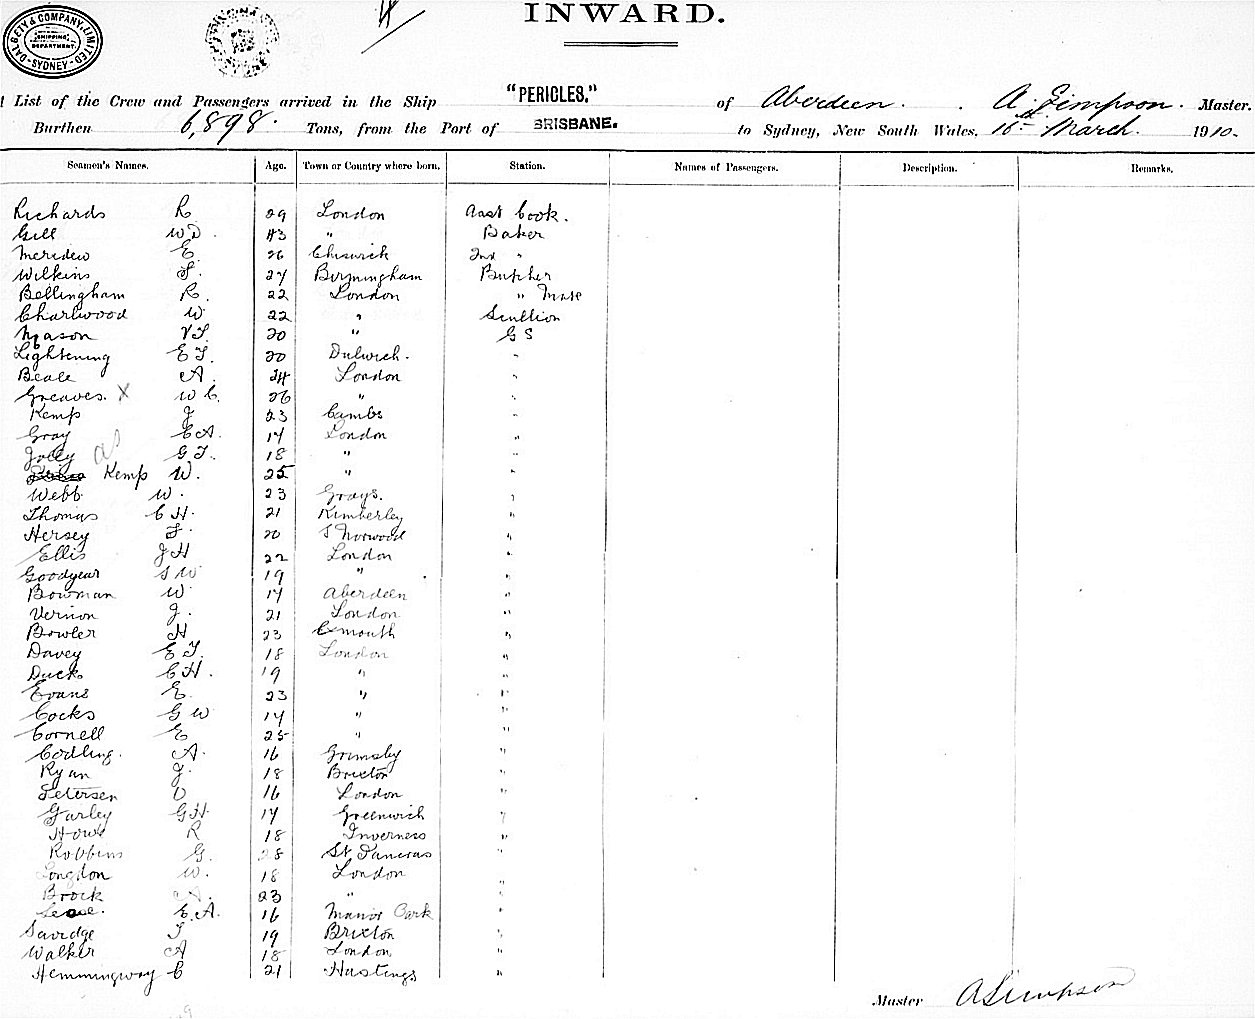 DALGETY & COMPANY, LIMITED
SHIPPING DEPARTMENT.
SYDNEY
INWARD.
List of the Crew and Passengers arrived in the Ship "PERICLES." of Aberdeen. A. Simpson. Master.
Burthen 6,898. Tons, from the Port of BRISBANE. to Sydney, New South Wales, March. 1910.
Seamen's Names. Age. Town or Country where born. Station. Names of Passengers. Description. Remarks.
Richards R. 29 London Asst Cook.
Gill W D. 43 " Baker
Meridew E. 26 Chiswick 2nd "
Wilkins F. 27 Birmingham Butcher
Bellingham R. 22 London " Mate
Charlwood W. 22 " Scullion
Mason V F. 20 " G S
Lightening E F. 20 Dulwich. "
Beale A. 24 London "
Greaves. X W C. 26 " "
Kemp J 23 Cambs "
Gray C A. 17 London "
Jolly G F. 18 " "
Kemp W. 25 " "
Webb W. 23 Grays. "
Thomas C H. 21 Kimberley "
Hersey F. 20 S Norwood "
Ellis J H 22 London "
Goodyear S W 19 " "
Bowman W 17 Aberdeen "
Vernon J. 21 London "
Bowler H 23 Exmouth "
Davey E F. 18 London "
Duck C H. 19 " "
Evans E. 23 " "
Cocks G W 17 " "
Cornell E 25 " "
Codling. A. 16 Grimsby "
Ryan J. 18 Brixton "
Petersen O 16 London "
Gurley G H 17 Greenwich "
Howe R 18 Inverness "
Robbins G. 28 St Pancras "
Longdon W. 18 London "
Brock A. 23 " "
E. A. 16 Manor Park "
Savidge F 19 Brixton "
Walker A 18 London "
Hemmingway C 21 Hastings "
Master A Simpson